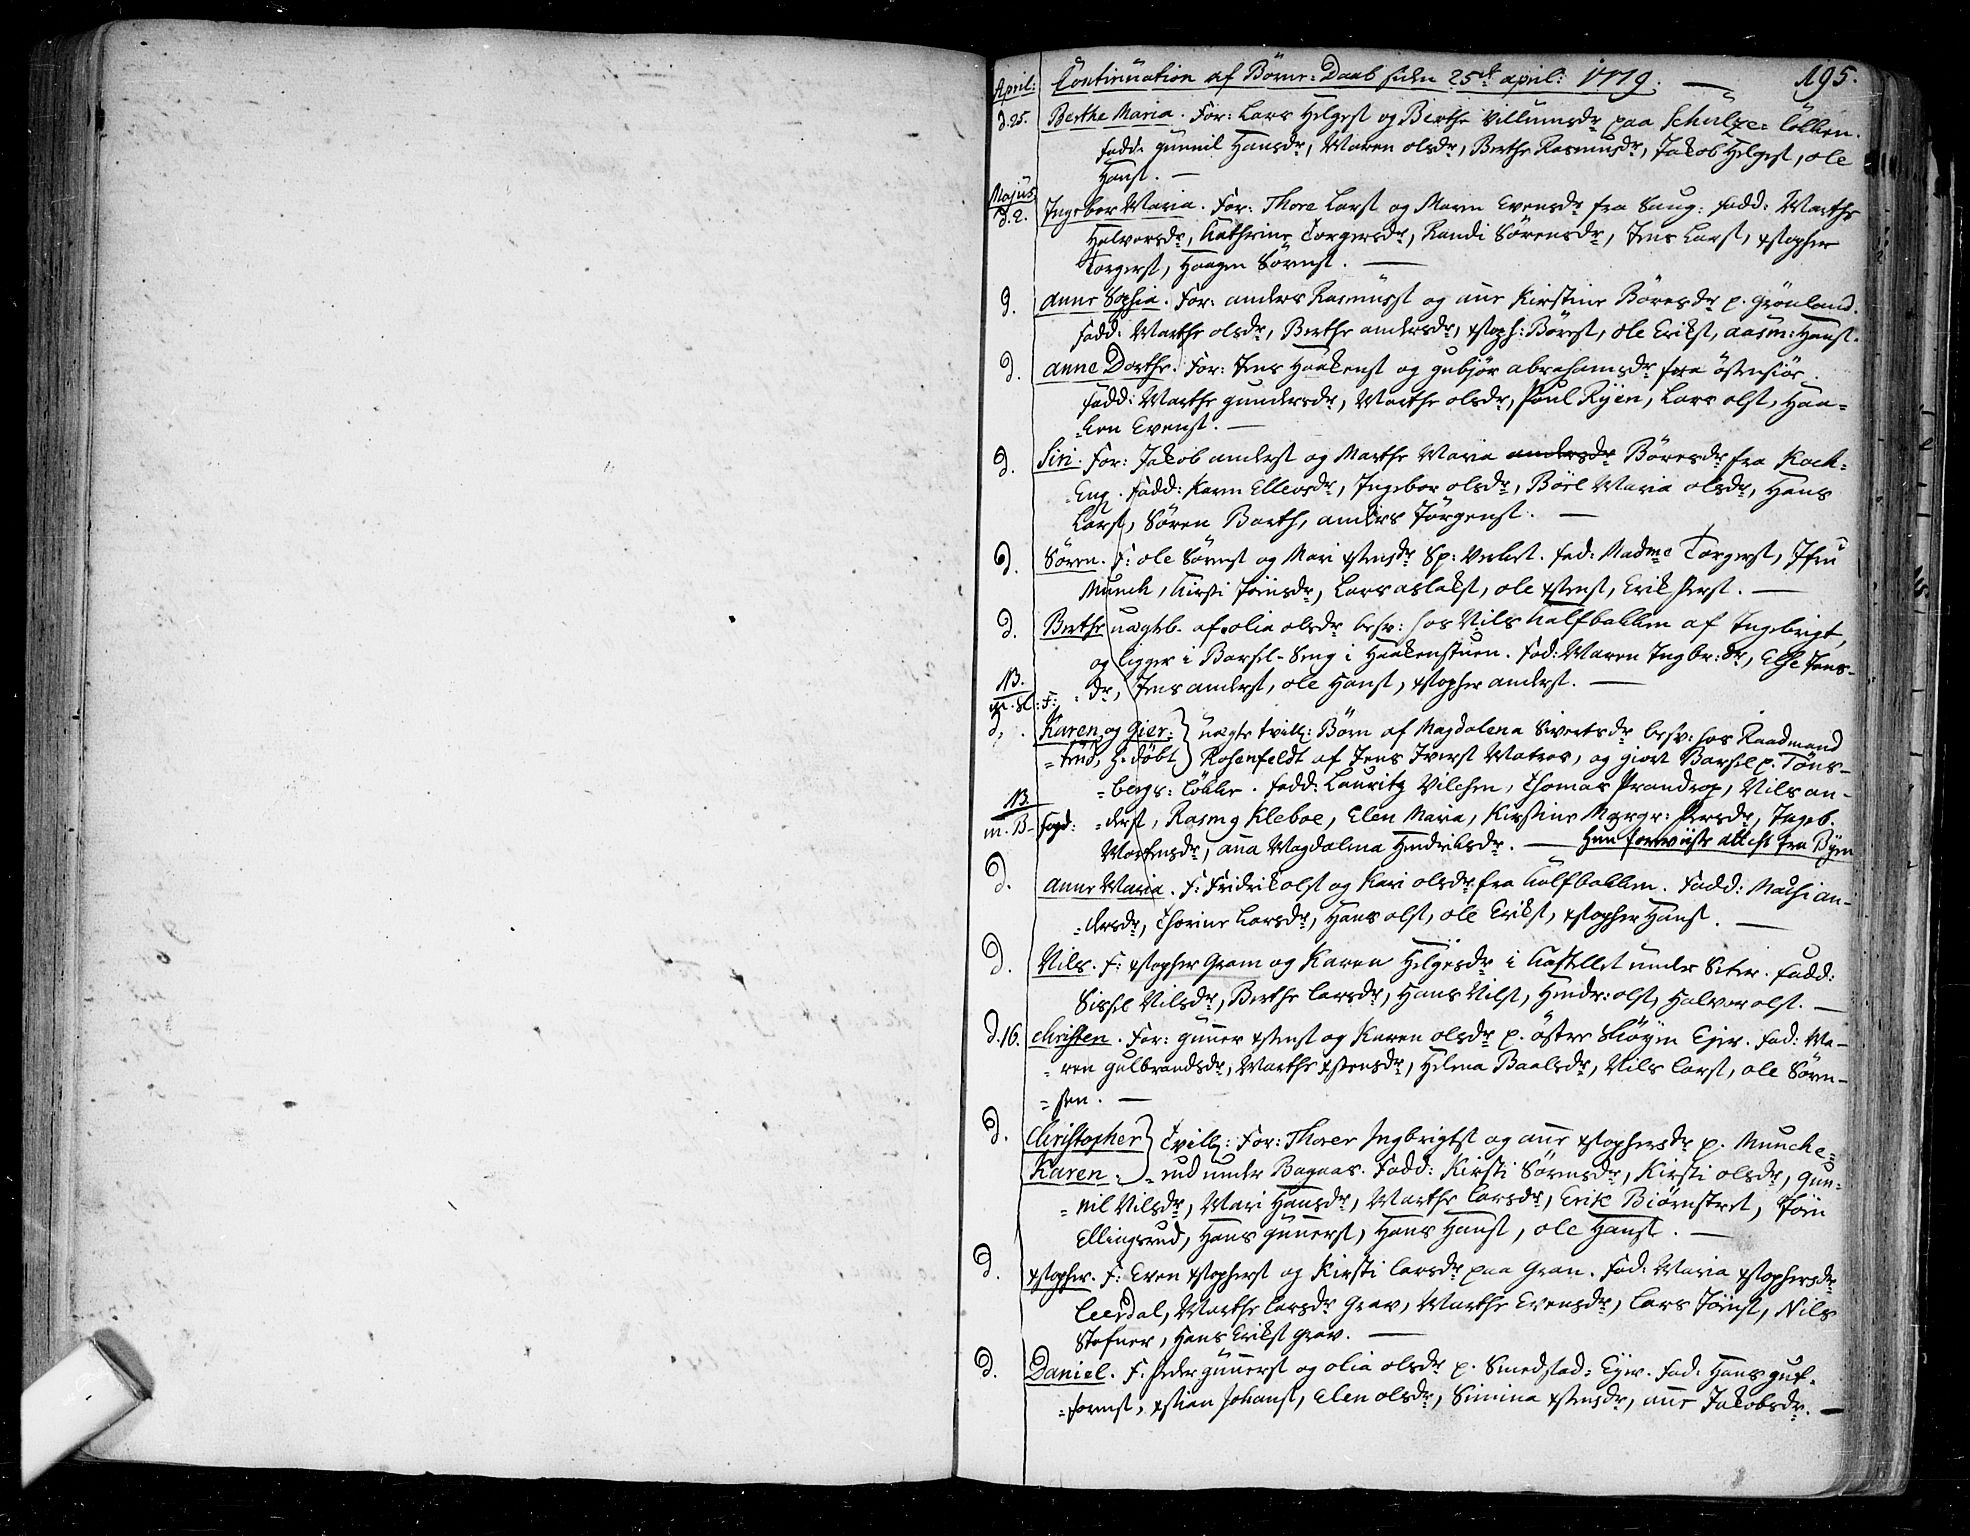 April: Continuation af Börne-Daab siden 25de april: 1779. 195.
d. 25. Berthe Maria. For: Lars Helgest og Berthe Villumsdr paa Schulze-løkken.
Fadd: Gunnil Hansdr, Maren olsdr, Berthe Rasmusdr, Jakob Helgest, ole
Hanst.
Majus d. 2. Ingebor Maria. For: Thore Larst og Maren Evensdr fra Saug: Fadd: Marthe
Halvorsdr, Kathrine Torgersdr, Randi Sörensdr, Jens Larst, xstopher
Torgerst, Haagen Sörenst.
9. Anne Sophia. For: anders Rasmusst og ane Kirstine Böresdr p. Grönland.
Fadd: Marthe olsdr, Berthe andersdr, xstoph: Börest, ole Erikst, aasm: Hanst.
d. Anne Dorthe. For: Jens Haakenst og gubjör abrahamsdr fra östensiöe.
Fadd: Marthe gundersdr, Marthe olsdr, Poul Ryen, Lars olst, Haa-
-ken Evenst.
d. Siri. For: Jakob anderst og Marthe Maria andersdr Böresdr fra Kock-
-Eng. Fadd: Karen Ellevsdr, Ingebor olsdr, Böel Maria olsdr, Hans
Larst, Sören Barth, anders Jörgenst.
d. Sören. F: ole Sörenst og Mari xstensdr Sp: Verket. Fad: Madme Torgerst, Jfru
Munch, Kirsti Jönsdr, Lars aslakst, ole xstenst, Erik Perst.
d. Berthe uægteb. af olia olsdr besv: hos Nils Kalfbakken af Ingebrigt,
og ligger i Barsel-Seng i Haakenstuen. Fad: Maren Ingbr: dr, Else Jens-
NB. m. Sl: F: -dr, Jens anderst, ole Hanst, xstopher anderst.
d. Karen og Gier- } uægte tvill: Børn af Magdalena Sivertsdr besv: hos Raadmand
-trud, H: döbt } Rosenfeldt af Jens Iverst Matros, og giort Barsel p. Töns-
-bergs: Lökke. Fadd: Lauritz Vilchen, Thomas Prandrop, Nils an-
NB. m. B- Fogd: -derst, Rasmg Kleboe, Elen Maria, Kirstine Margr: Persdr, Ingeb.
Mortensdr, ana Magdalena Hendriksdr. Hun foreviiste attest fra Byen
d. Anne Maria. F: Fridrik olst og Kari olsdr fra Kalfbakken. Fadd: Mathi an-
-dersdr, Thorine Larsdr, Hans olst, ole Erikst, xstopher Hanst.
d. Nils. F: xstopher Gram og Karen Helgesdr i Kastellet under Seter. Fadd:
Sissel Nilsdr, Berthe Larsdr, Hans Nilst, Hendr: olst, Halvor olst.
d. 16. Christen. For: gunner xstenst og Karen olsdr p. östre Skøyen Ejer. Fad: Ma-
-ren gulbrandsdr, Marthe xstensdr, Helena Baalsdr, Nils Larst, ole Sören-
-sen.
d. Christopher } Tvill: For: Thorer Ingbrigtst og ane xstophersdr p. Muncke-
Karen. } -rud under Bagaas. Fadd: Kirsti Sörensdr, Kirsti olsdr, Gun-
-nil Nilsdr, Mari Hansdr, Marthe Larsdr, Erik Biörnstret, Jön
Ellingsrud, Hans gunnerst, Hans Hanst, ole Hanst.
d. xstopher. F: Even xstopherst og Kirsti Larsdr paa Gran. Fad: Maria xstophersdr
Leerdal, Marthe Larsdr Grav, Marthe Evensdr, Lars Jönst, Nils
Stefner, Hans Erikst Grav.
d. Daniel. F: Peder gunnerst og olia olsdr p. Smedstad: Ejer. Fad: Hans gut-
-tormst, xstian Johanst, Elen olsdr, Simina xstensdr, ane Jakobsdr.